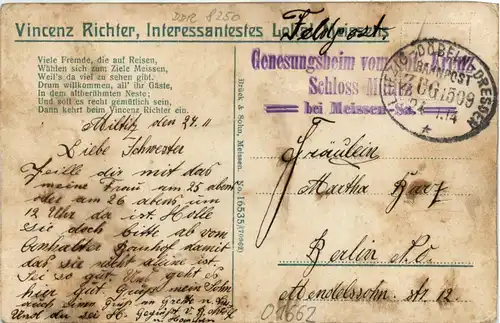 DDR 8250
Vincenz Richter, Interessantestes Lokal Meissens
Feldpost.
Viele Fremde, die auf Reisen,
Wählen sich zum Ziele Meissen,
Weil's da viel zu sehen gibt.
Drum willkommen, all' ihr Gäste,
In dem altberühmten Neste;
Und soll es recht gemütlich sein,
Dann kehrt beim Vincenz Richter ein.
Genesungsheim vom
Schloss
bei Meissen-Sa.
DÖBELN-DRESDEN
BAHNPOST
ZUG 1509
Brück & Sohn, Meissen. No. 16535
Miltitz den 24. 11
Liebe Schwester
Teile dir mit das
meine Frau am 25 abent
oder am 26 abens um
12 Uhr da ist. Holle
sie doch bitte ab vom
Anhalter Banhof damit
das sie nicht aleine ist.
Sei so gut. Uns geht es
hier gut Grüße mein Sohn
Und du sei H. Gegrüßt v.
Fräulein
Martha
Berlin N.O.
Mendelssohn st. 12
01662